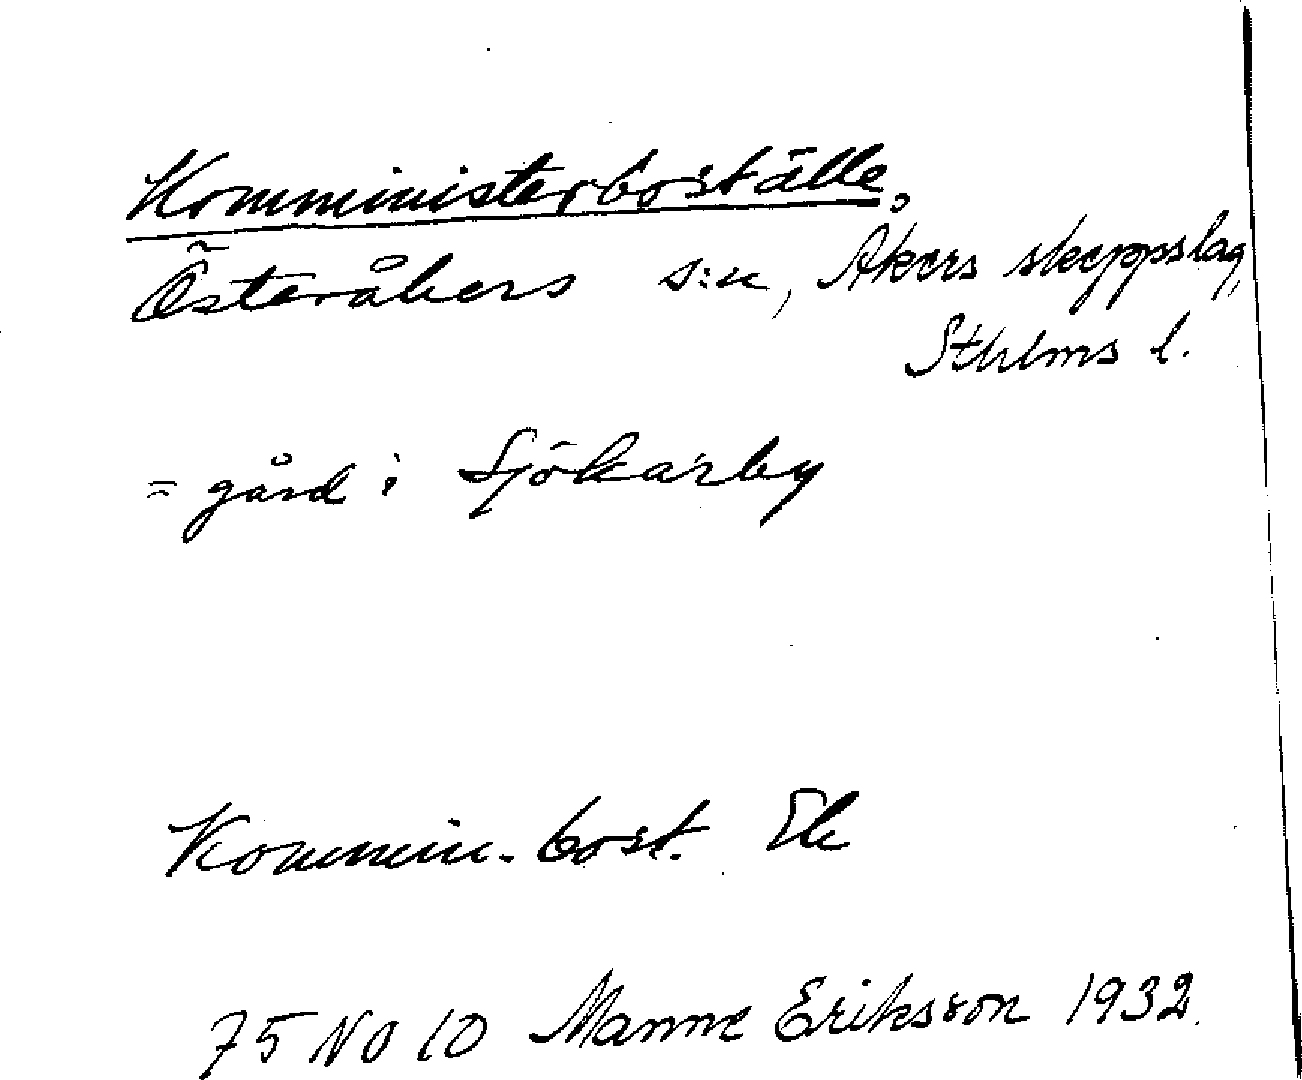 Komministerboställe.
Österåkers s:n, Åkers skeppslag,
Sthlms l.
= gård i Sjökarby
Kommin.bost. Ek
75 NO 10 Manne Eriksson 1932.